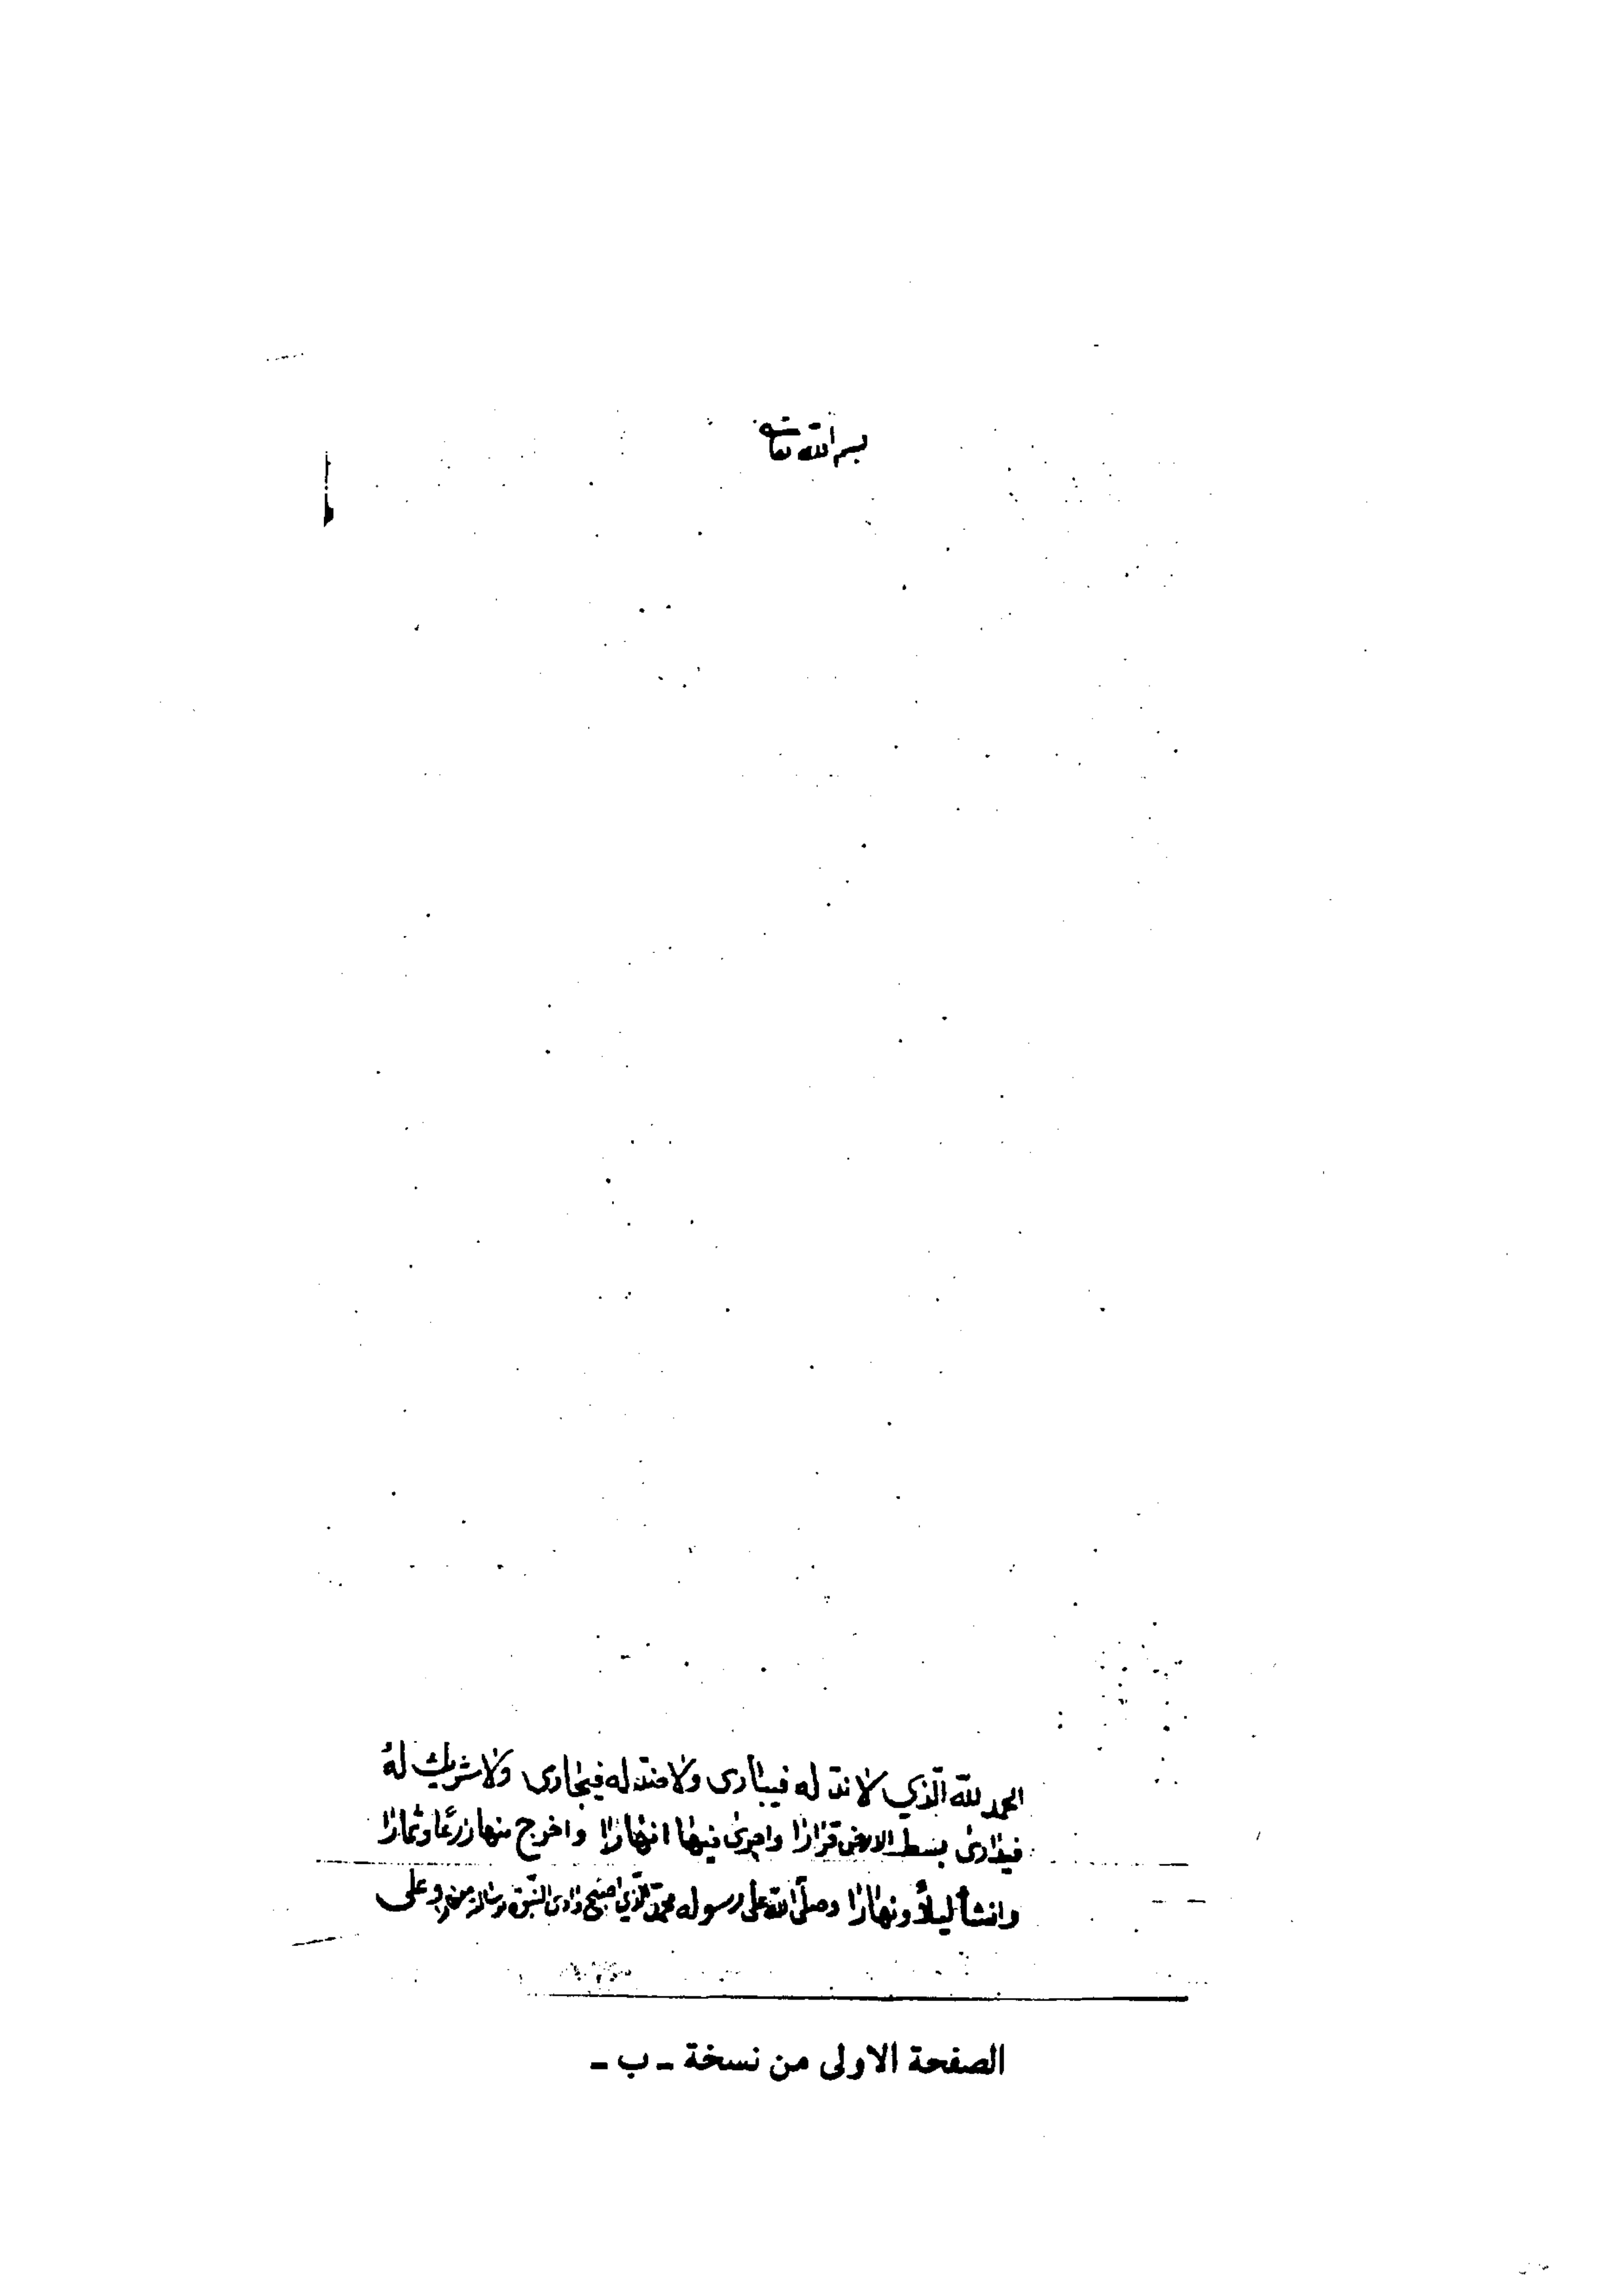 بسم الله تعالى
الحمد لله الّذي لا ندّ له فيبارى ولا ضدّ له فيجارى ولا شريك لهُ
فيدارى بسط الارض قرارًا واجرى فيها انهارًا واخرج منها زرعًا وثمارًا
وانشأ ليلاً ونهارًا وصلّى الله على رسوله محمّد الّذي اصبح وادى النبّوة وعلى
الصفحة الاولى من نسخة ـ ب ـ